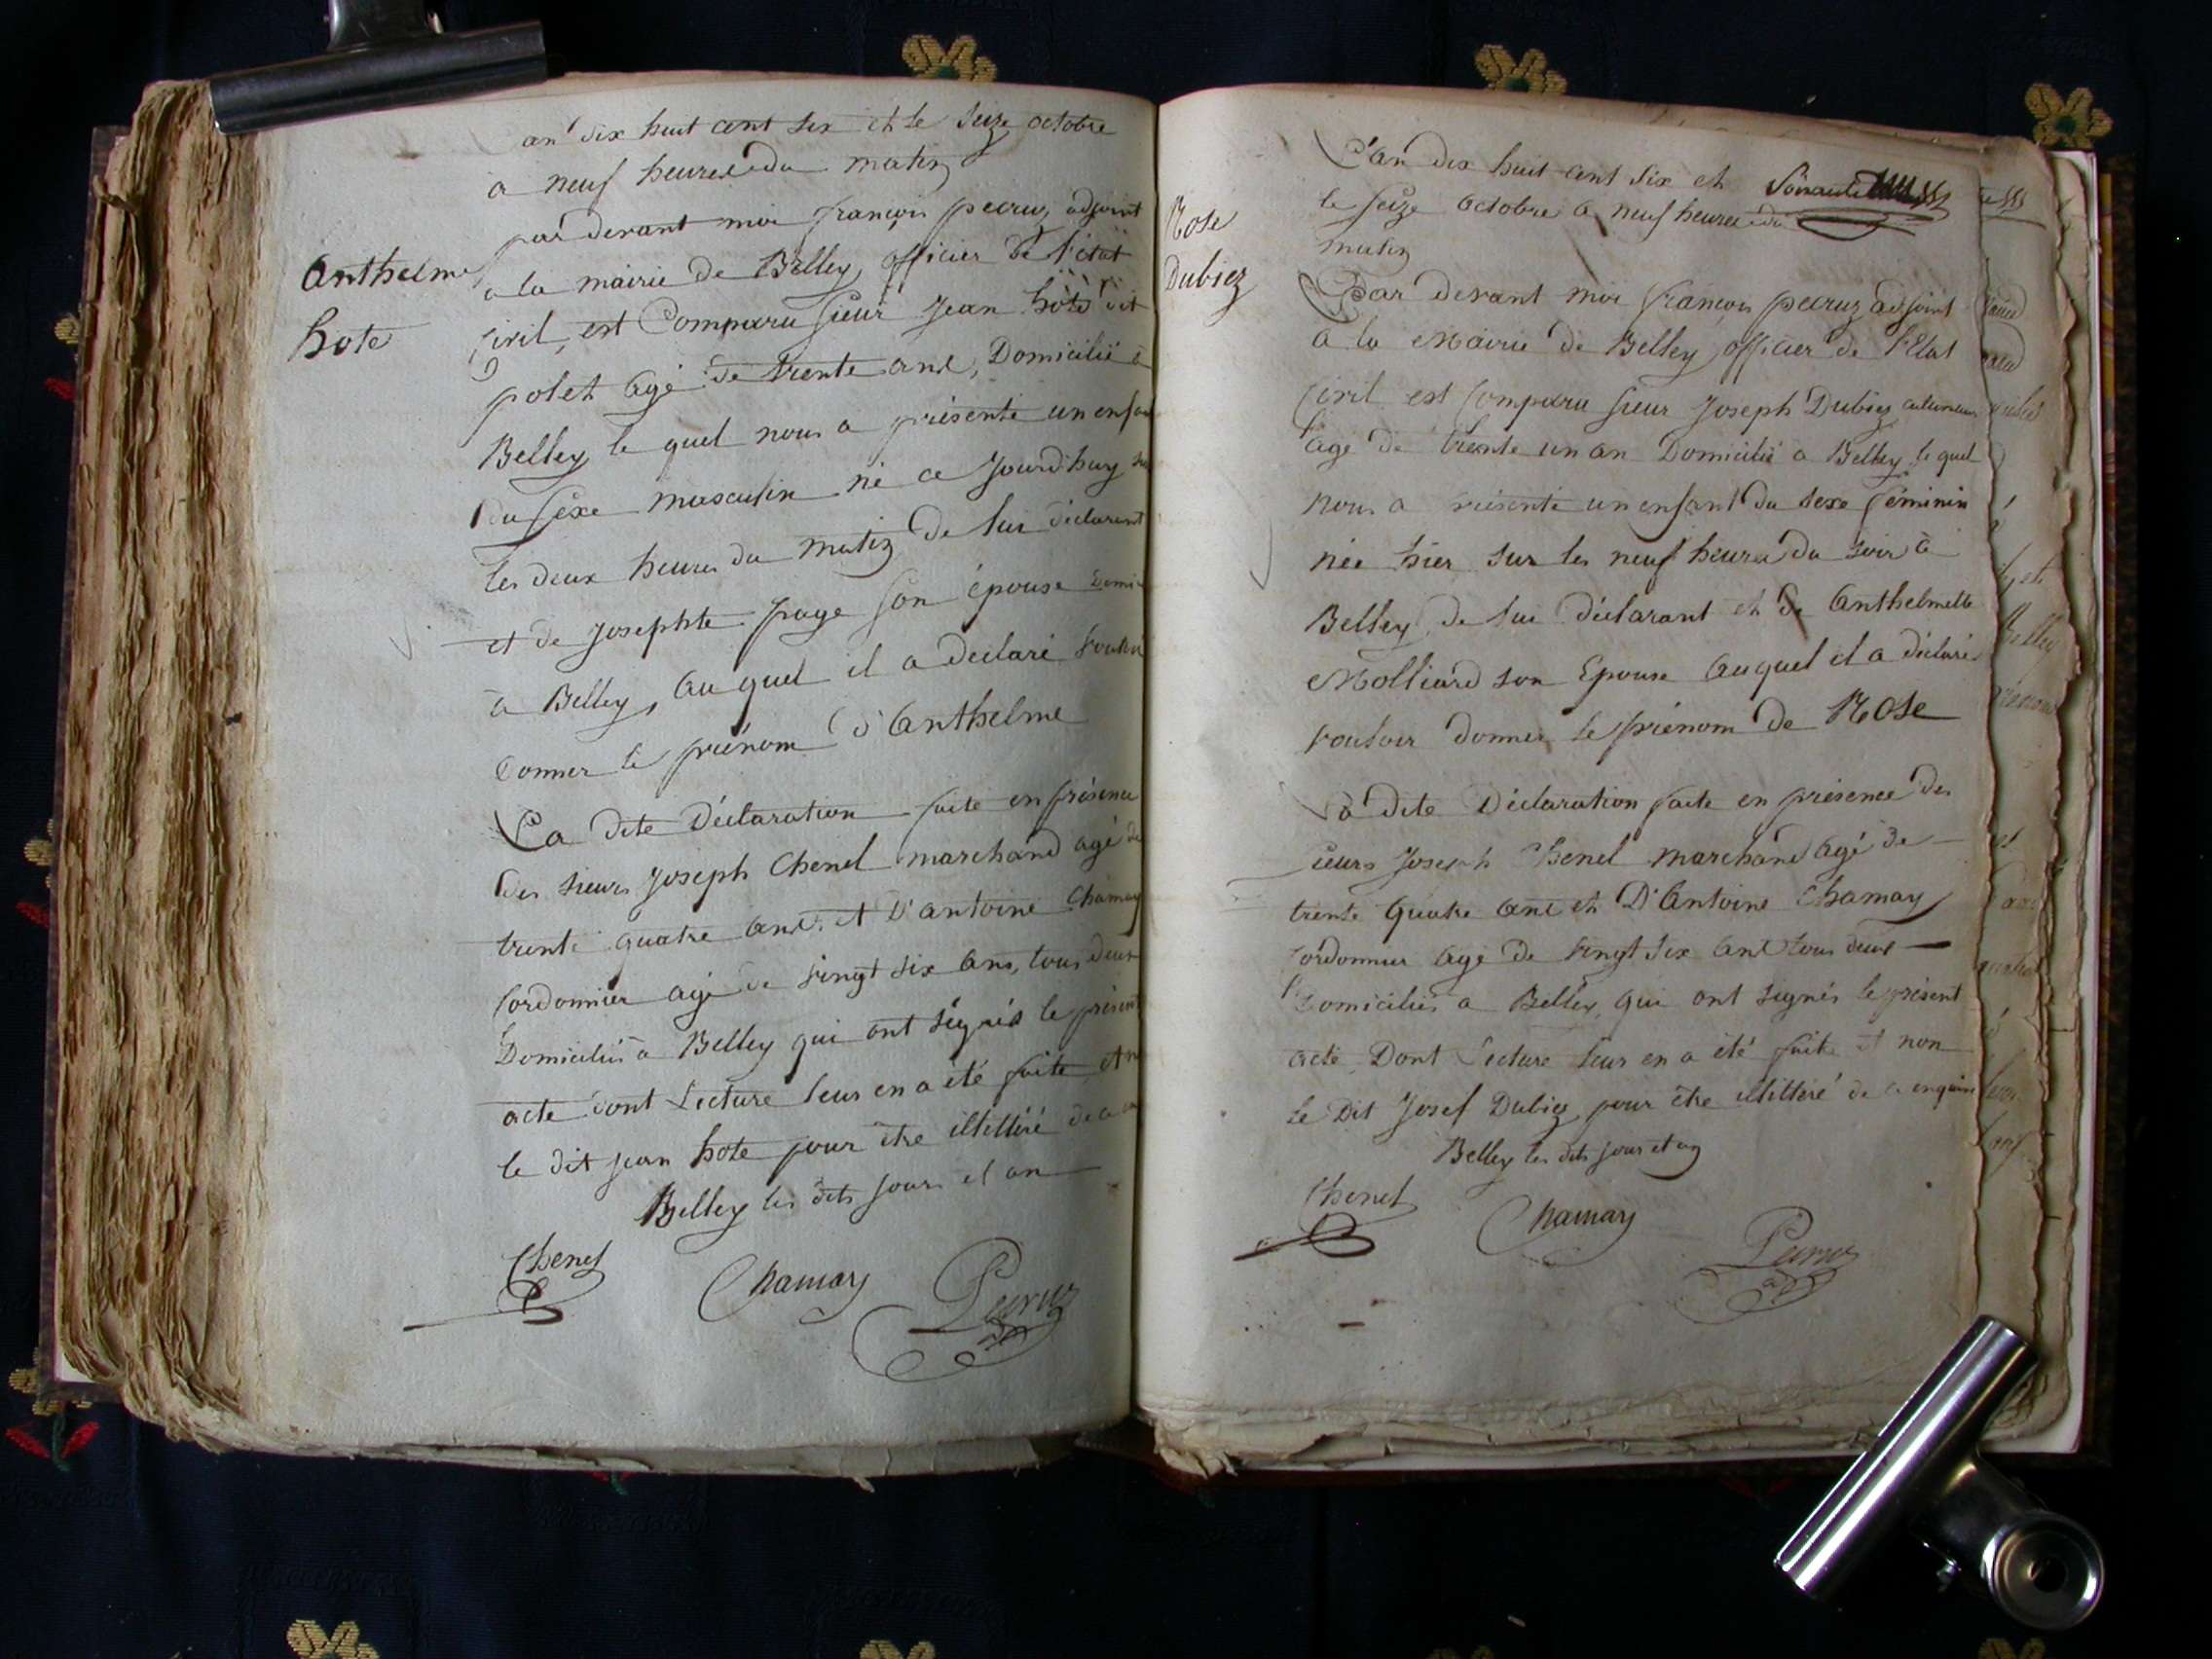 an dix huit cent six et le seize octobre
a neuf heures du matin
par devant moi françois pecruz adjoint
Anthelme
hote
a la mairie de Belley, officier de l'état
civil, est Comparu sieur Jean hote dit
polet agé de trente ans, Domicilié à
Belley le quel nous a présenté un enfant
du sexe masculin né ce jourd'huy sur
les deux heures du matin de lui déclarant
et de Josephte page son épouse Domi
à Belley, au quel il a déclaré vouloir
donner le prénom d'Anthelme
La dite Déclaration faite en présence
des sieurs Joseph Chenel marchand agé de
trente quatre ans et D'antoine Chamay
cordonnier agé de vingt six ans, tous deux
Domiciliés à Belley qui ont signés le présent
acte dont Lecture leur en a été faite, et n
le dit jean hote pour être illittéré de ce
Belley les dits jour et an
Chenel
Chamay
Pecruz
L'an dix huit cent six et
Rose
Dubiez
le seize octobre a neuf heures du
matin
Par devant moi françois pecruz adjoint
a la Mairie de Belley officier de l'Etat
Civil est Comparu sieur Joseph Dubiez cultivateur
agé de trente un an Domicilié a Belley le quel
nous a présenté un enfant du sexe féminin
née hier sur les neuf heures du soir à
Belley de lui déclarant et de Anthelmette
Molliard son Epouse auquel il a déclaré
vouloir donner le prénom de Rose
La dite Déclaration faite en présence des
sieurs Joseph Chenel marchand agé de
trente quatre ans et D'Antoine Chamay
cordonnier agé de vingt six ans tous deux
Domiciliés a Belley, qui ont signés le présent
acte Dont Lecture leur en a été faite et non
le Dit Josef Dubiez pour être illittéré de ce enquis
Belley les dits jour et an
Chenel
Chamay
Pecruz